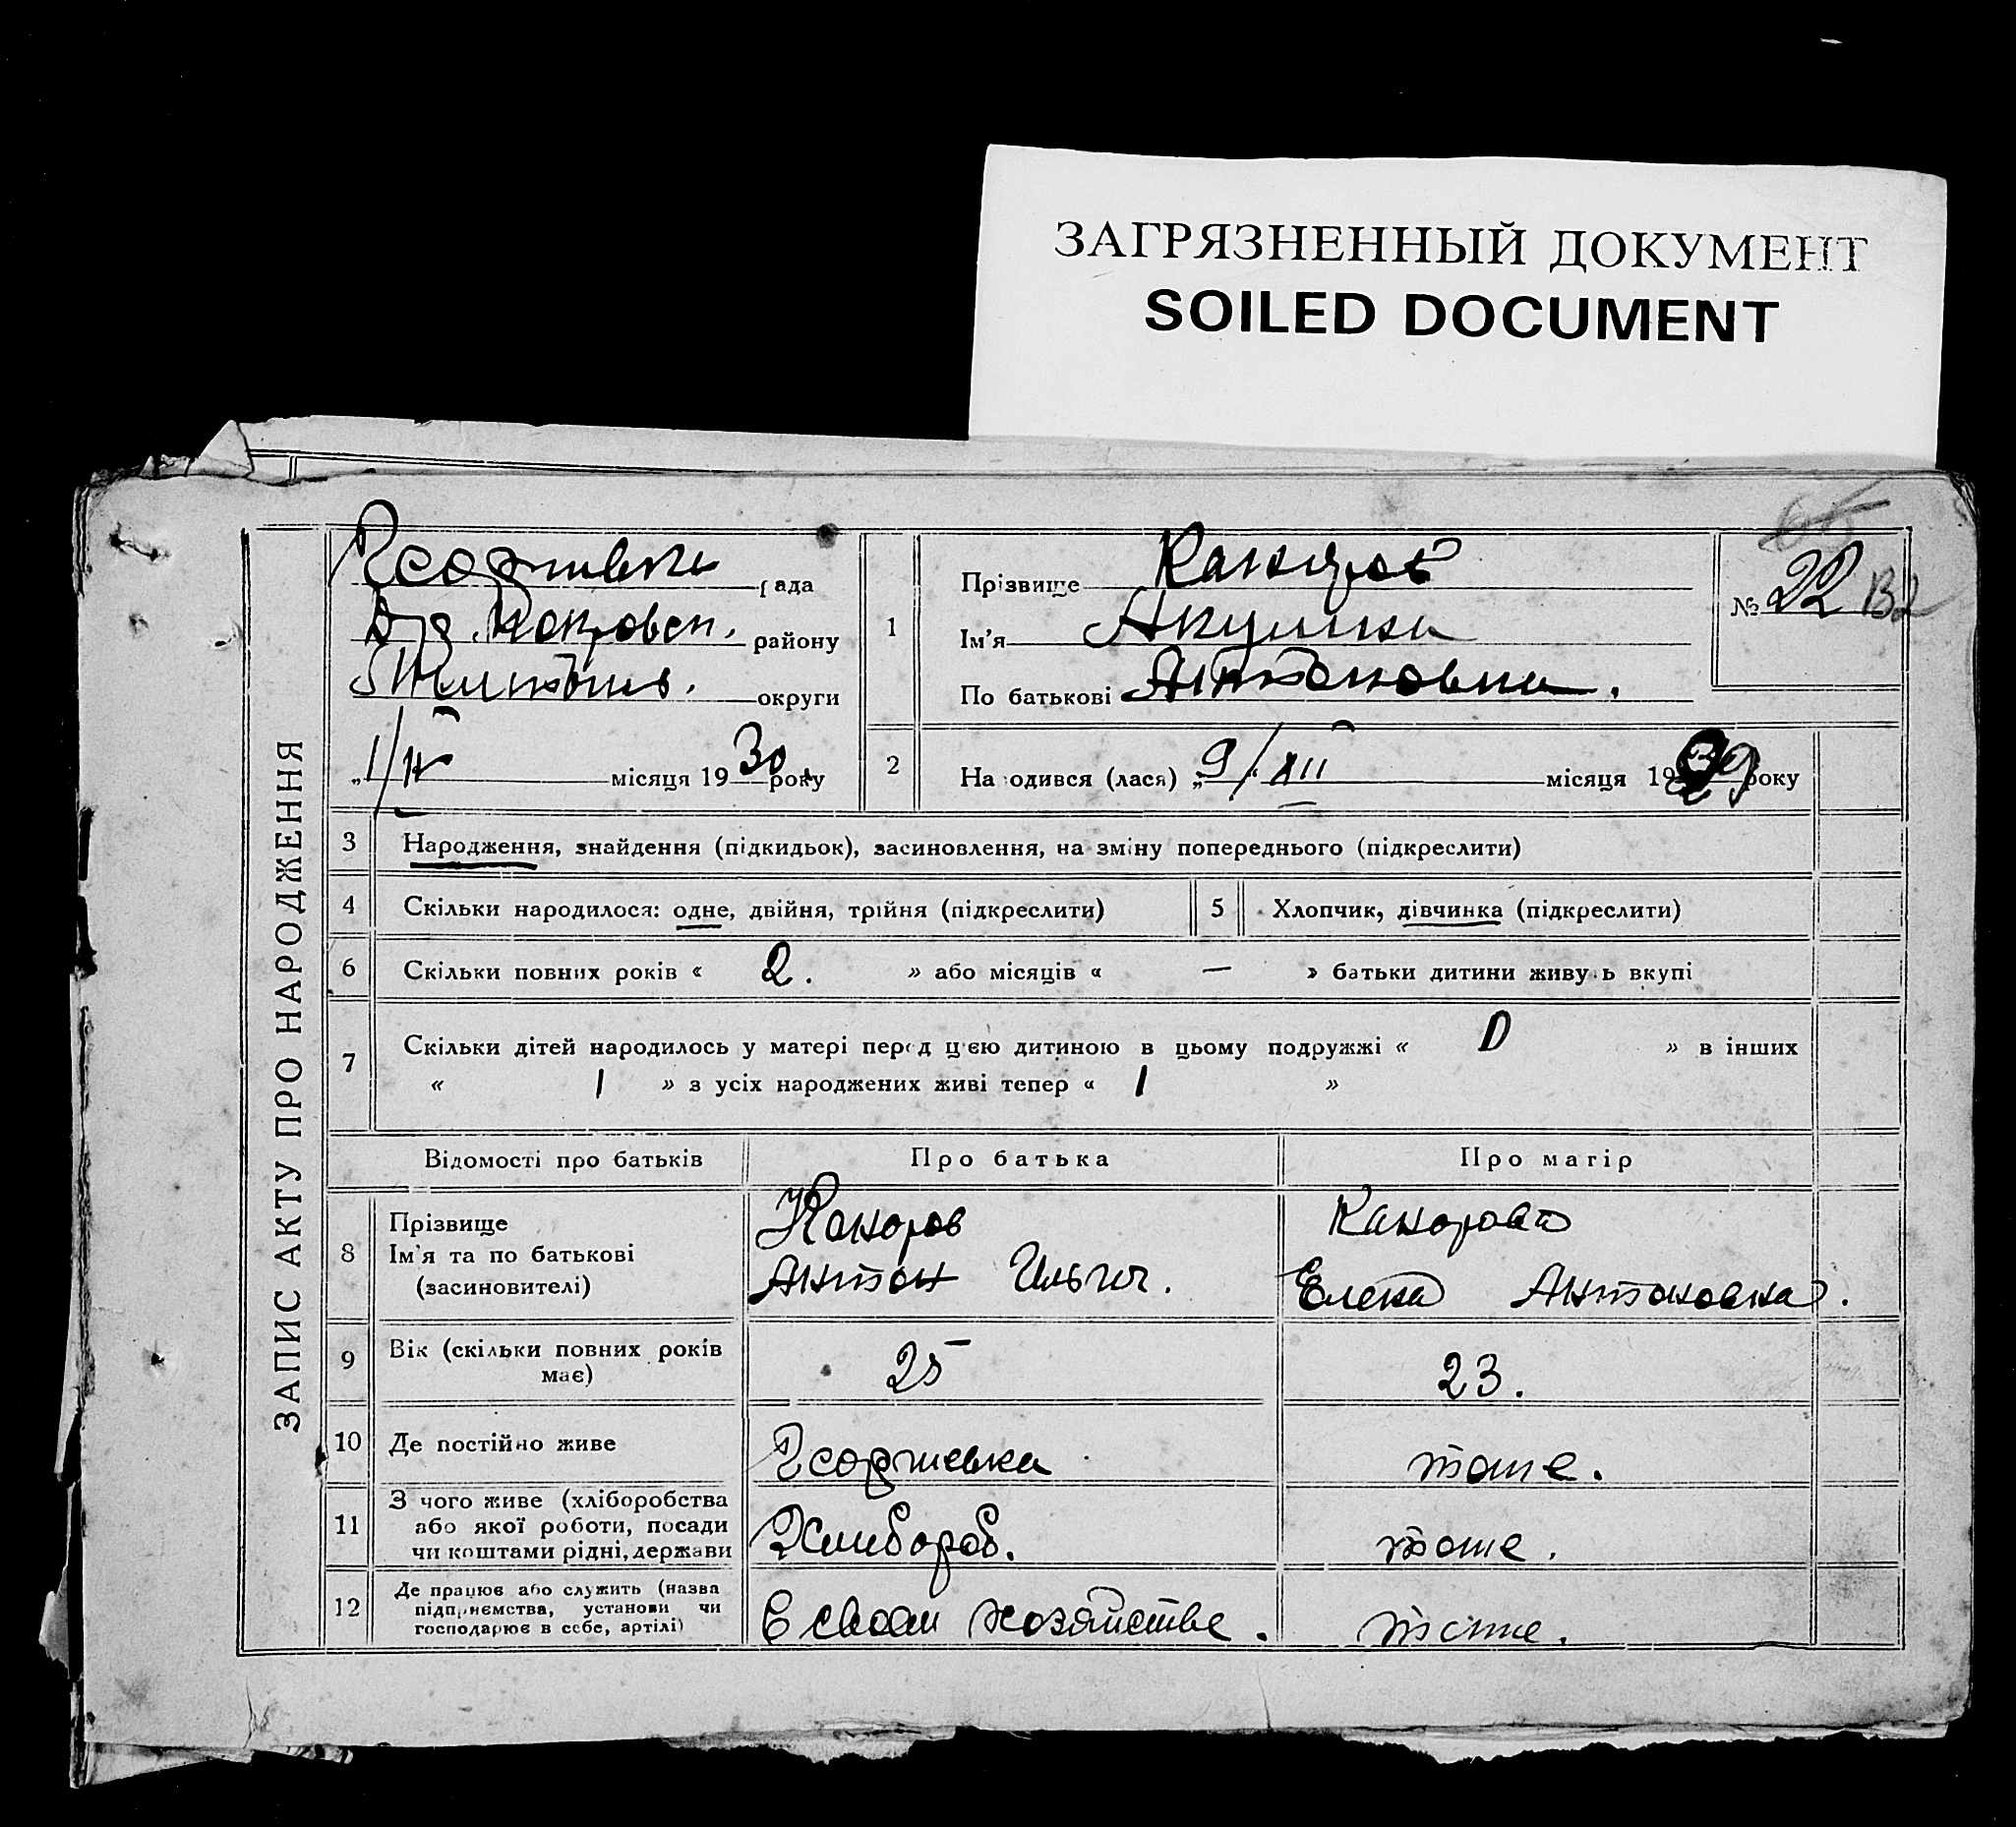 ЗАГРЯЗНЕННЫЙ ДОКУМЕНТ
SOILED DOCUMENT
ЗАПИС АКТУ ПРО НАРОДЖЕННЯ
рада
району
округи
„1/IV місяця 1930 року
1
Прізвище
Ім'я
По батькові Антоновна.
№ 22
2
На одився (лася) „9/XII місяця 1929 року
3 Народження, знайдення (підкидьок), засиновлення, на зміну попереднього (підкреслити)
4 Скільки народилося: одне, двійня, трійня (підкреслити)
5 Хлопчик, дівчинка (підкреслити)
6 Скільки повних років « 2. » або місяців « — » батьки дитини живу ь вкупі
7 Скільки дітей народилось у матері перед цією дитиною в цьому подружжі « 0 » в інших
« 1 » з усіх народжених живі тепер « 1 »
Відомості про батьків Про батька Про матір
8 Прізвище
Ім'я та по батькові
(засиновителі)
Каноров
Антон Ильич.
Канорова
Елена Антоновна.
9 Вік (скільки повних років
має)
25 23.
10 Де постійно живе Георгиевка тоже.
11 З чого живе (хліборобства
або якої роботи, посади
чи коштами рідні, держави
Хлибороб. тоже.
12 Де працює або служить (назва
підприємства, установи чи
господарює в себе, артілі)
В своем хозяйстве. тоже.